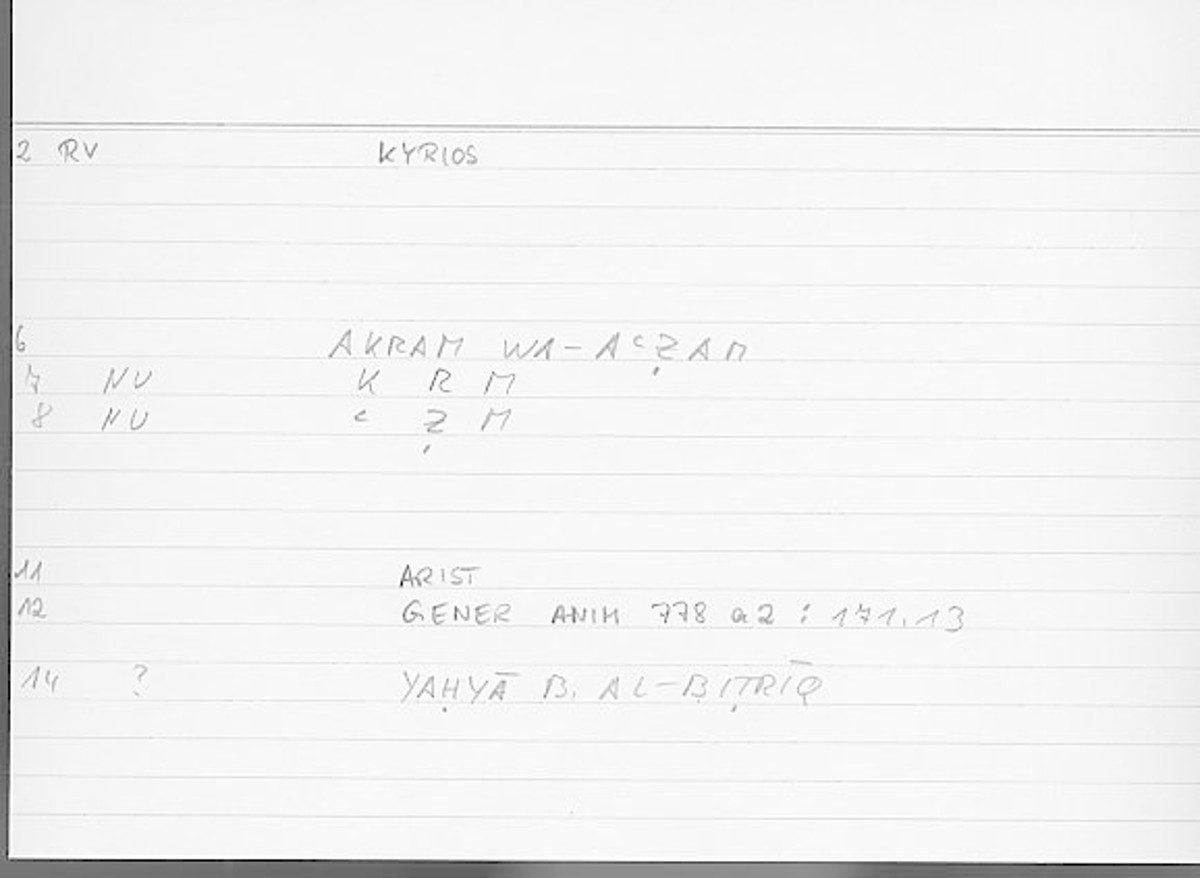 2 RV KYRIOS
6 AKRAM WA-AʿẒAM
7 NU K R M
8 NU ʿ Ẓ M
11 ARIST
12 GENER ANIM 778 a2 : 171.13
14 ? YAḤYĀ B. AL-BIṬRĪQ